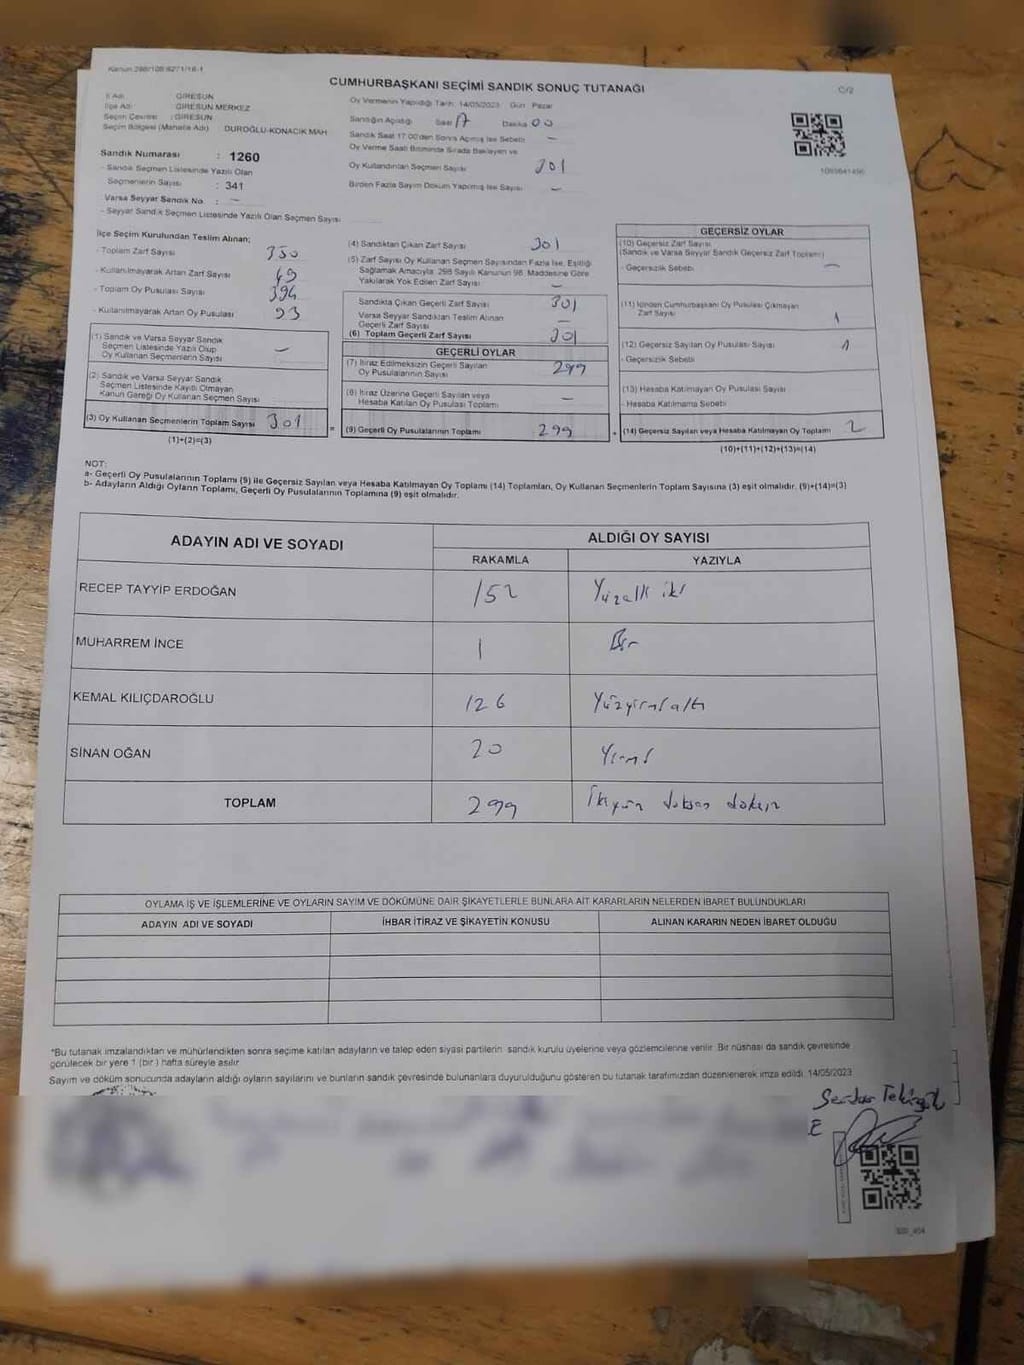 Kanun:298/108:6271/18-1
CUMHURBAŞKANI SEÇİMİ SANDIK SONUÇ TUTANAĞI
C/2
İl Adı : GİRESUN
İlçe Adı : GİRESUN MERKEZ
Seçim Çevresi : GİRESUN
Seçim Bölgesi (Mahalle Adı) : DUROĞLU-KONACIK MAH
Sandık Numarası : 1260
- Sandık Seçmen Listesinde Yazılı Olan
Seçmenlerin Sayısı : 341
Varsa Seyyar Sandık No : -
- Seyyar Sandık Seçmen Listesinde Yazılı Olan Seçmen Sayısı
Oy Vermenin Yapıldığı Tarih: 14/05/2023 Gün: Pazar
Sandığın Açıldığı Saat 17 Dakika 00
Sandık Saat 17.00'den Sonra Açılmış İse Sebebi -
Oy Verme Saati Bitiminde Sırada Bekleyen ve
Oy Kullandırılan Seçmen Sayısı 301
Birden Fazla Sayım Döküm Yapılmış İse Sayısı -
İlçe Seçim Kurulundan Teslim Alınan;
- Toplam Zarf Sayısı 350
- Kullanılmayarak Artan Zarf Sayısı 49
- Toplam Oy Pusulası Sayısı 394
- Kullanılmayarak Artan Oy Pusulası 93
(1) Sandık ve Varsa Seyyar Sandık
Seçmen Listesinde Yazılı Olup
Oy Kullanan Seçmenlerin Sayısı -
(2) Sandık ve Varsa Seyyar Sandık
Seçmen Listesinde Kayıtlı Olmayan
Kanun Gereği Oy Kullanan Seçmen Sayısı
(3) Oy Kullanan Seçmenlerin Toplam Sayısı 301
(1)+(2)=(3)
(4) Sandıktan Çıkan Zarf Sayısı 301
(5) Zarf Sayısı Oy Kullanan Seçmen Sayısından Fazla İse, Eşitliği
Sağlamak Amacıyla, 298 Sayılı Kanunun 98. Maddesine Göre
Yakılarak Yok Edilen Zarf Sayısı -
Sandıkta Çıkan Geçerli Zarf Sayısı 301
Varsa Seyyar Sandıktan Teslim Alınan
Geçerli Zarf Sayısı -
(6) Toplam Geçerli Zarf Sayısı 301
GEÇERLİ OYLAR
(7) İtiraz Edilmeksizin Geçerli Sayılan
Oy Pusulalarının Sayısı 299
(8) İtiraz Üzerine Geçerli Sayılan veya
Hesaba Katılan Oy Pusulası Toplamı -
(9) Geçerli Oy Pusulalarının Toplamı 299
GEÇERSİZ OYLAR
(10) Geçersiz Zarf Sayısı
(Sandık ve Varsa Seyyar Sandık Geçersiz Zarf Toplamı)
- Geçersizlik Sebebi: -
(11) İçinden Cumhurbaşkanı Oy Pusulası Çıkmayan
Zarf Sayısı 1
(12) Geçersiz Sayılan Oy Pusulası Sayısı 1
- Geçersizlik Sebebi
(13) Hesaba Katılmayan Oy Pusulası Sayısı
- Hesaba Katılmama Sebebi
(14) Geçersiz Sayılan veya Hesaba Katılmayan Oy Toplamı 2
(10)+(11)+(12)+(13)=(14)
NOT:
a- Geçerli Oy Pusulalarının Toplamı (9) ile Geçersiz Sayılan veya Hesaba Katılmayan Oy Toplamı (14) Toplamları, Oy Kullanan Seçmenlerin Toplam Sayısına (3) eşit olmalıdır. (9)+(14)=(3)
b- Adayların Aldığı Oyların Toplamı, Geçerli Oy Pusulalarının Toplamına (9) eşit olmalıdır.
ADAYIN ADI VE SOYADI ALDIĞI OY SAYISI
RAKAMLA YAZIYLA
RECEP TAYYİP ERDOĞAN 152 Yüzelli iki
MUHARREM İNCE 1 Bir
KEMAL KILIÇDAROĞLU 126 Yüzyirmialtı
SİNAN OĞAN 20 Yirmi
TOPLAM 299 İkiyüz doksan dokuz
OYLAMA İŞ VE İŞLEMLERİNE VE OYLARIN SAYIM VE DÖKÜMÜNE DAİR ŞİKAYETLERLE BUNLARA AİT KARARLARIN NELERDEN İBARET BULUNDUKLARI
ADAYIN ADI VE SOYADI İHBAR İTİRAZ VE ŞİKAYETİN KONUSU ALINAN KARARIN NEDEN İBARET OLDUĞU
*Bu tutanak imzalandıktan ve mühürlendikten sonra seçime katılan adayların ve talep eden siyasi partilerin sandık kurulu üyelerine veya gözlemcilerine verilir. Bir nüshası da sandık çevresinde
görülecek bir yere 1 (bir) hafta süreyle asılır.
Sayım ve döküm sonucunda adayların aldığı oyların sayılarını ve bunların sandık çevresinde bulunanlara duyurulduğunu gösteren bu tutanak tarafımızdan düzenlenerek imza edildi. 14/05/2023
Serdar
E